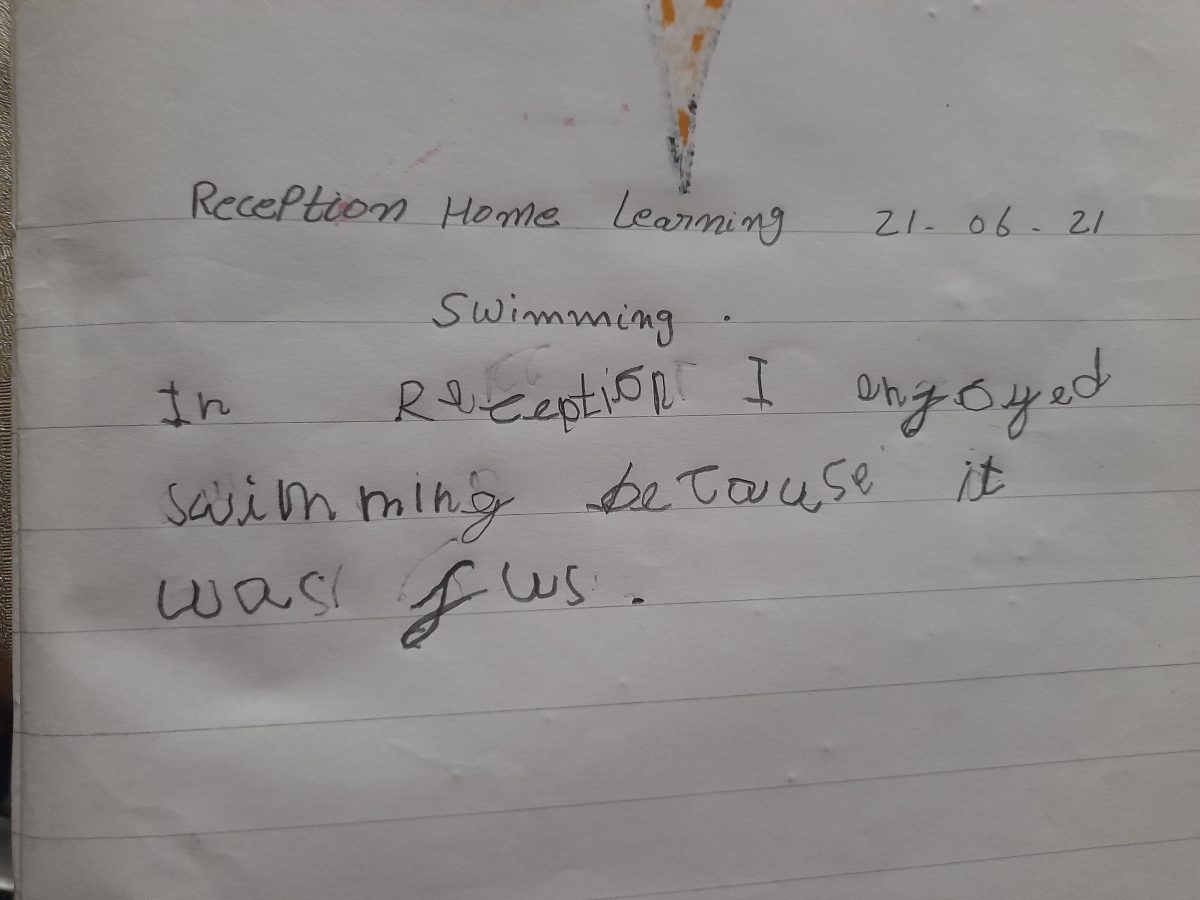 Reception Home Learning 21-06-21
Swimming.
In Reception I angoyed
swimming because it
was fus.